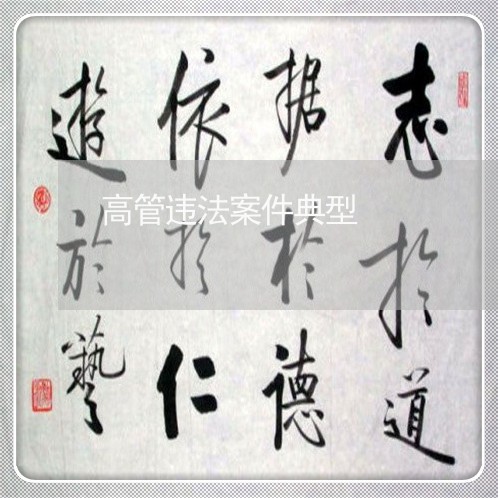 志於道
据於德
依於仁
遊於藝
高管违法案件典型